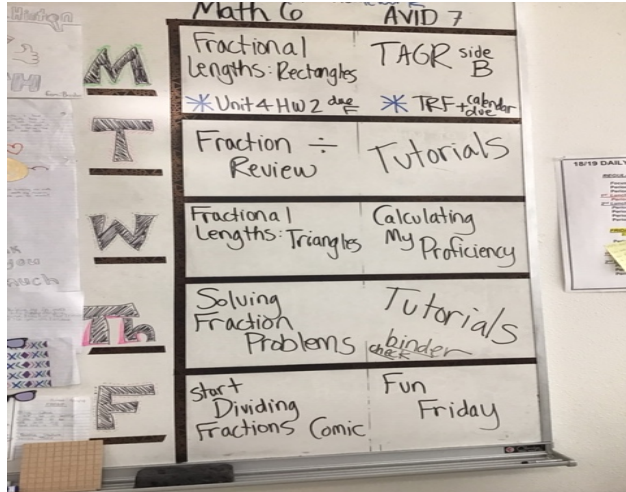 Math 6
AVID 7
M
Fractional
Lengths: Rectangles
* Unit 4 HW 2 due F
TAGR side B
* TRF + calendar due
T
Fraction ÷
Review
Tutorials
W
Fractional
Lengths: Triangles
Calculating
My Proficiency
Th
Solving
Fraction
Problems
Tutorials
binder
check
F
start
Dividing
Fractions Comic
Fun
Friday
18/19 DAILY